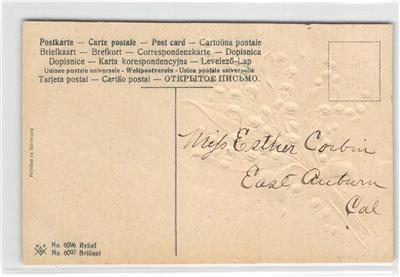 Postkarte — Carte postale — Post card — Cartolina postale
Briefkaart — Brefkort — Correspondenzkarte — Dopisnica
Dopisnice — Karta korespondencyjna — Levelező-Lap
Unione postale universale - Weltpostverein - Union postale universelle
Tarjeta postal — Cartão postal — ОТКРЫТОЕ ПИСЬМО.
Miss Esther Corbin
East Auburn
Cal
Printed in Germany
No. 6096 Relief
No. 6097 Brillant